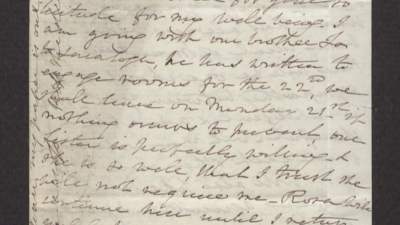 for your so
licitude for my well being. I
am going with our brother
to Saratoga, he has written to
engage rooms for the 22nd, we
shall leave on Monday 21st if
nothing occurs to prevent, our
sister is perfectly willing &
she is so well, that I trust she
will not require me_ Rosa will
continue here until I return